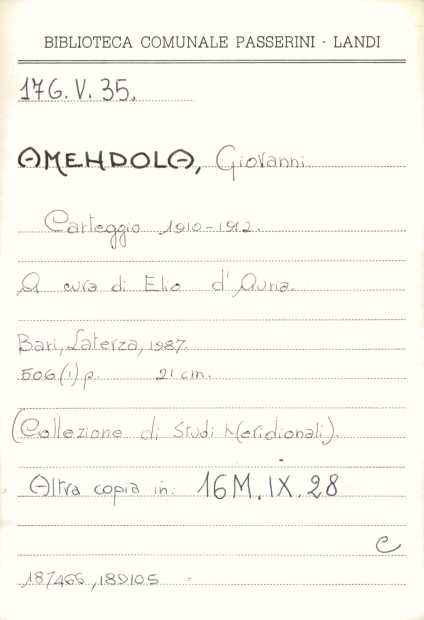 BIBLIOTECA COMUNALE PASSERINI - LANDI
176. V. 35.
AMENDOLA, Giovanni
Carteggio 1910-1912.
A cura di Elio d'Auria.
Bari, Laterza, 1987.
506 (1) p. 21 cm.
(Collezione di Studi Meridionali).
Altra copia in: 16M. IX. 28
C
187466, 189105